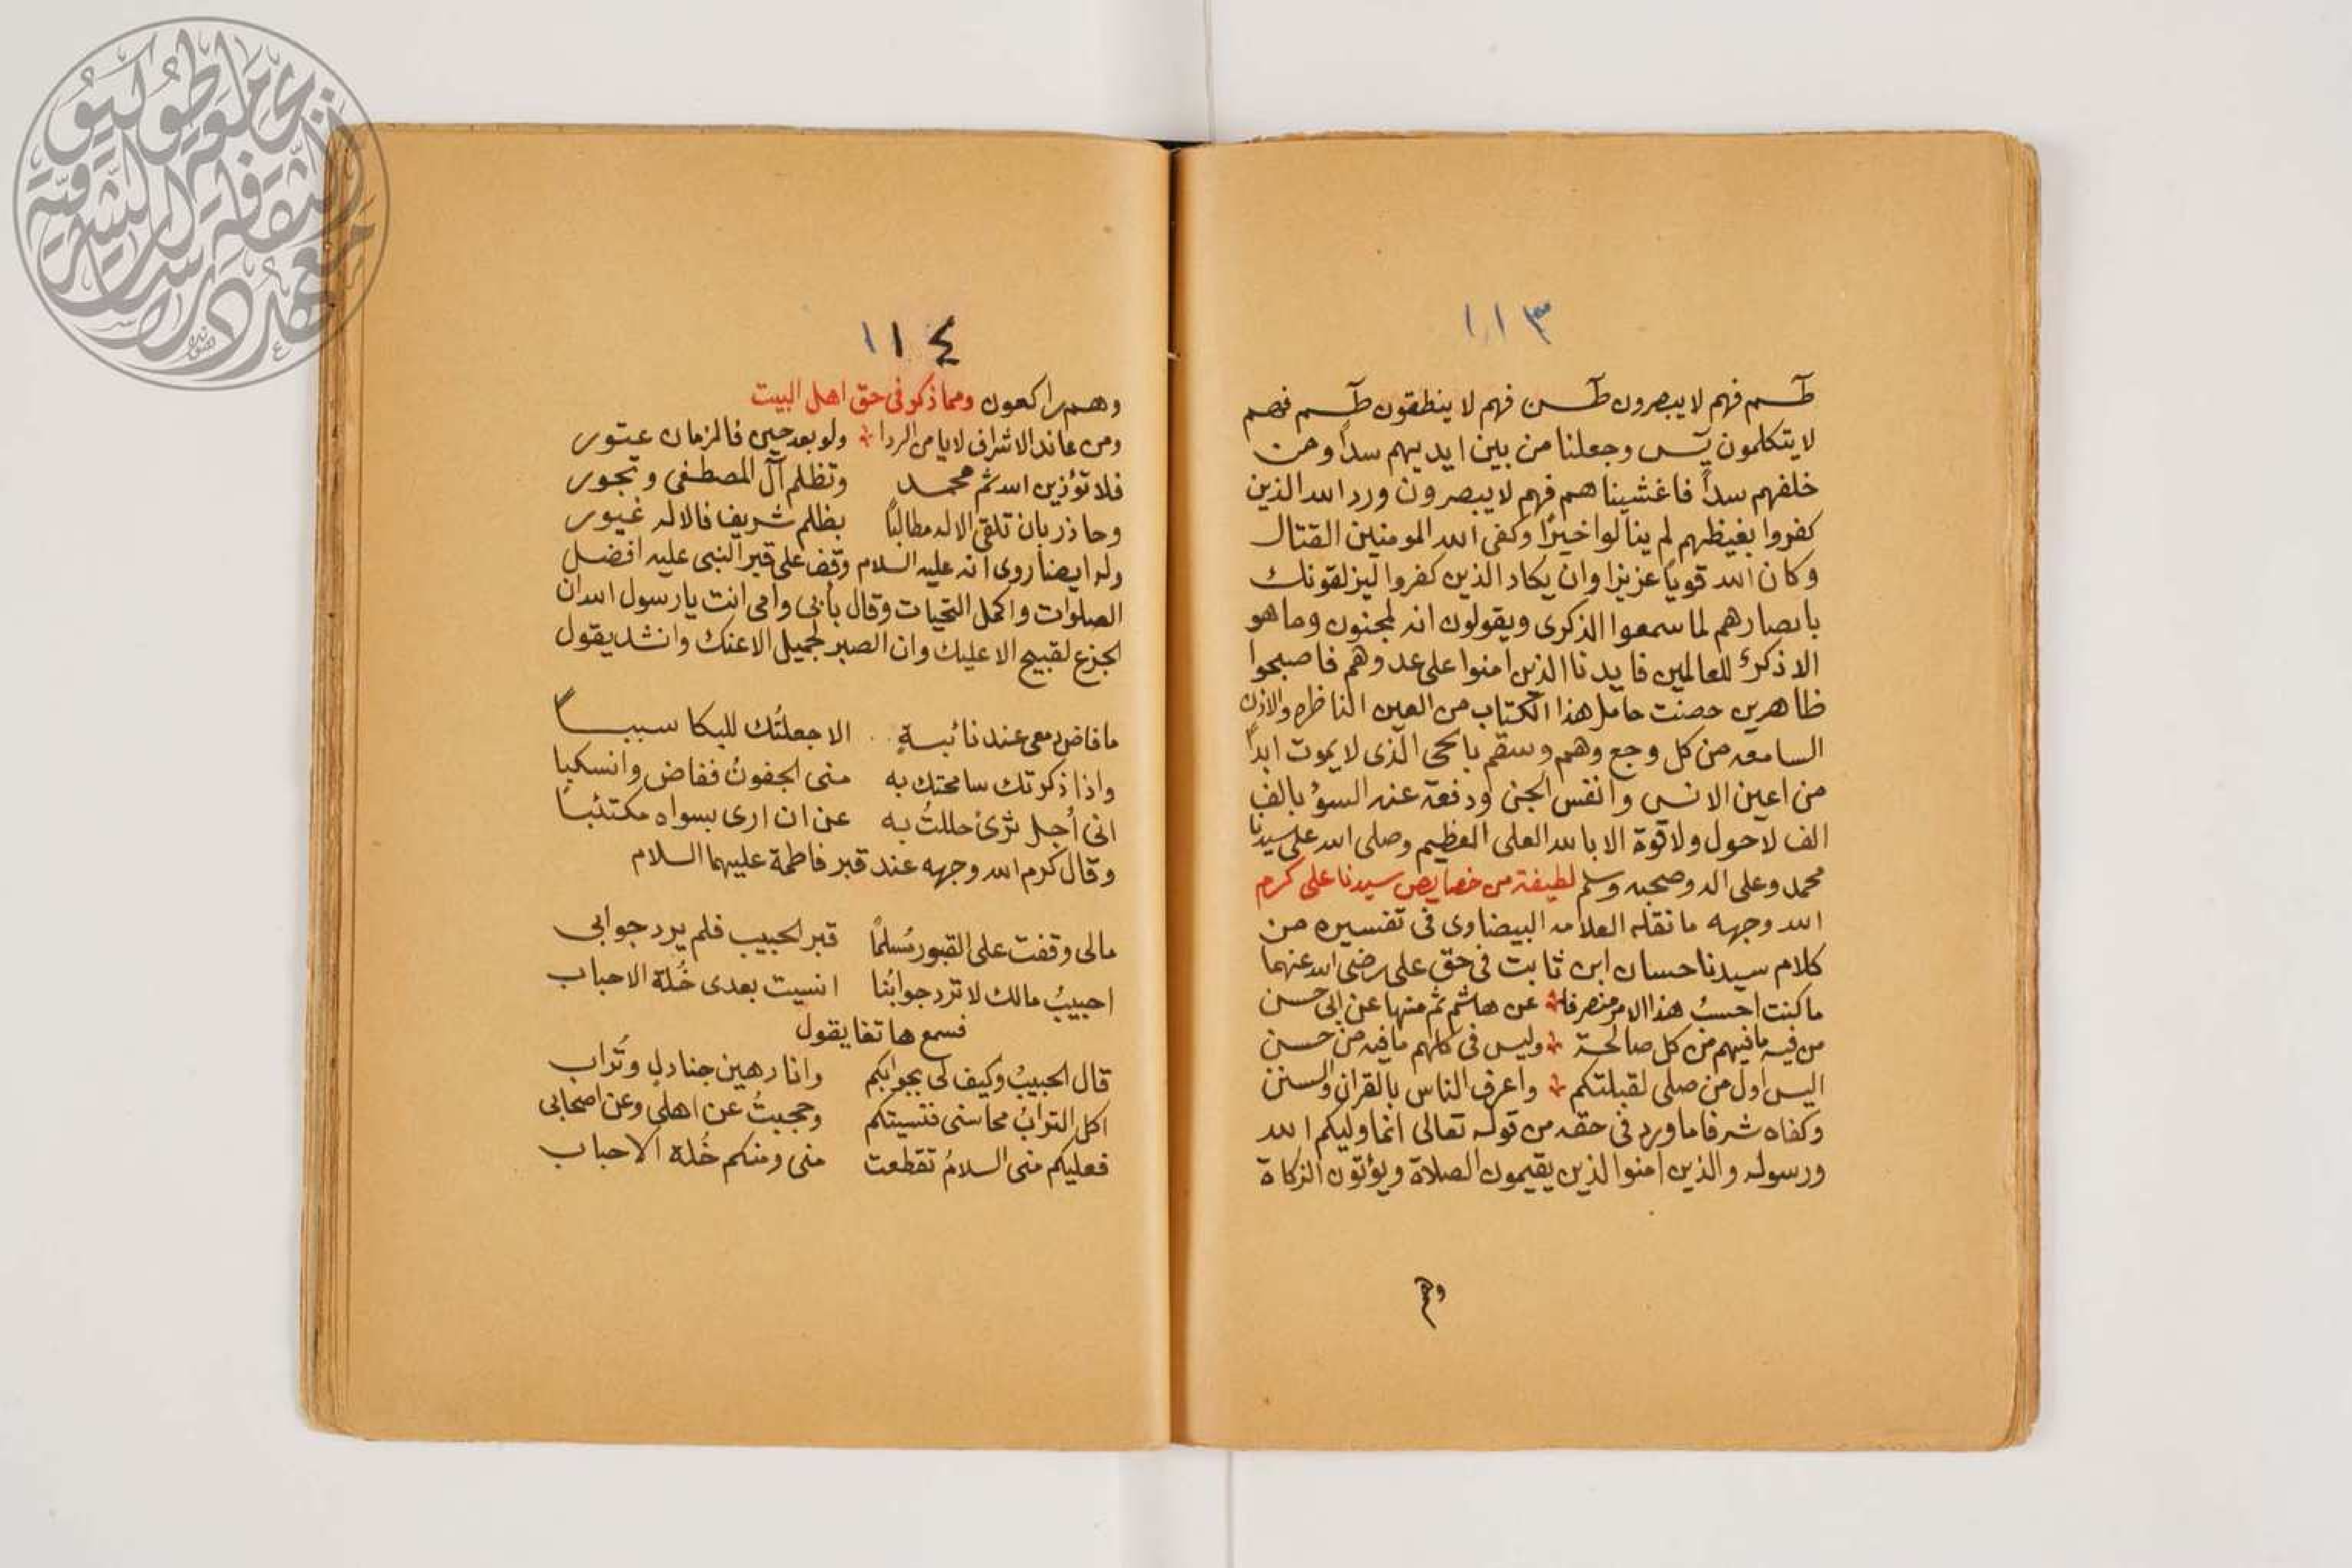 ١١٣
طسم فهم لا يبصرون طسن فهم لا ينطقون طسم فهم
لا يتكلمون يس وجعلنا من بين ايديهم سداً ومن
خلفهم سداً فاغشيناهم فهم لا يبصرون ورد الله الذين
كفروا بغيظهم لم ينالوا خيرًا وكفى الله المومنين القتال
وكان الله قوياً عزيزا وان يكاد الذين كفروا ليزلقونك
بابصارهم لما سمعوا الذكرى ويقولون انه لمجنون وما هو
الا ذكرىً للعالمين فايدنا الذين امنوا على عدوهم فاصبحوا
ظاهرين حصنت حامل هذا الكتاب من العين الناظره والاذن
السامعه من كل وجع وهم وسقم بالحى الذى لا يموت ابداً
من اعين الانس وانفس الجن ودفعة عنه السؤ بالف
الف لا حول ولا قوة الا بالله العلى العظيم وصلى الله على سيدنا
محمد وعلى اله وصحبه وسلم لطيفة من خصايص سيدنا على كرم
الله وجهه ما نقله العلامه البيضاوى فى تفسيره من
كلام سيدنا حسان ابن ثابت فى حق على رضى الله عنهما
ما كنت احسبُ هذا الامر منصرفا عن هاشم ثم منها عن ابى حسن
من فيه ما فيهم من كل صالحة وليس فى كلهم ما فيه من حسن
اليس اول من صلى لقبلتكم واعرف الناس بالقران والسنن
وكفاه شرفا ما ورد فى حقه من قوله تعالى انما وليكم الله
ورسوله والذين امنوا الذين يقيمون الصلاة ويؤتون الزكاة
وهم
١١٤
وهم راكعون ومما ذكر فى حق اهل البيت
ومن عاند الاشراف لا يامن الردا ولو بعد حين فالزمان عبتور
فلا تؤذين الله ثم محمد وتظلم آل المصطفى وتجور
وحاذر بان تلقى الاله مطالبًا بظلم شريف فالاله غيور
وله ايضا روى انه عليه السلام وقف على قبر النبى عليه افضل
الصلوات واكمل التحيات وقال بأبى وامى انت يا رسول الله ان
الجزع لقبيح الا عليك وان الصبر لجميل الا عنك وانشد يقول
ما فاض دمعى عند نائبةٍ الا جعلتُك للبكا سببــاً
واذا ذكرتك سامحتك به منى الجفونُ ففاض وانسكبا
انى أُجل ثرىً حللتُ به عن ان ارى بسواه مكتئباً
وقال كرم الله وجهه عند قبر فاطمة عليهما السلام
مالى وقفت على القبور مُسلمًا قبر الحبيب فلم يرد جوابى
احبيبُ مالك لا ترد جوابُنا انسيت بعدى خُلة الاحباب
فسمع هاتفا يقول
قال الحبيبُ وكيف لى بجوابكم وانا رهين جنادلٍ وتُراب
اكل الترابُ محاسنى فنسيتكم وحجبتُ عن اهلى وعن اصحابى
فعليكم منى السلامُ تقطعت منى ومنكم خُلة الاحباب
معهد دراسات الثقافة الشرقية
بجامعة طوكيو